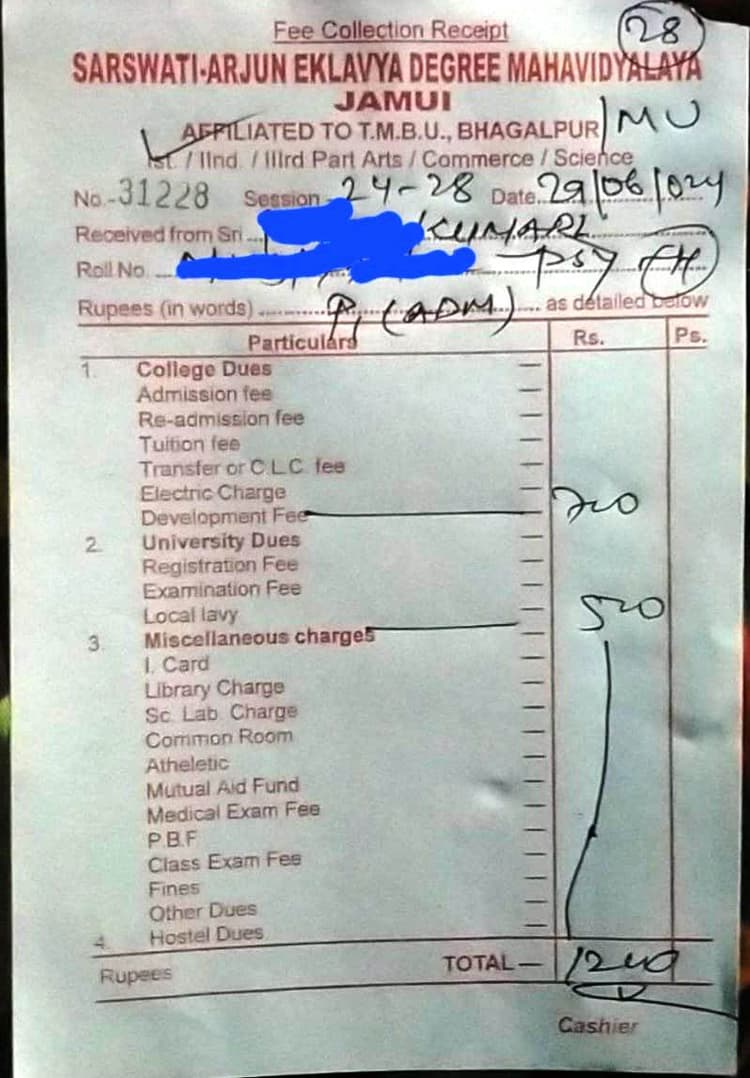 28
Fee Collection Receipt
SARSWATI-ARJUN EKLAVYA DEGREE MAHAVIDYALAYA
JAMUI
AFFILIATED TO T.M.B.U., BHAGALPUR / MU
Ist. / IInd. / IIIrd Part Arts / Commerce / Science
No.-31228 Session 24-28 Date. 29/06/024
Received from Sri KUMARI
Roll No. PSY (H)
Rupees (in words) P1 (ADM) as detailed below
Particulars Rs. Ps.
1. College Dues
Admission fee
Re-admission fee
Tuition fee
Transfer or C.L.C. fee
Electric Charge
Development Fee 720
2. University Dues
Registration Fee
Examination Fee
Local lavy 520
3. Miscellaneous charges
I. Card
Library Charge
Sc. Lab. Charge
Common Room
Atheletic
Mutual Aid Fund
Medical Exam Fee
P.B.F
Class Exam Fee
Fines
Other Dues
4. Hostel Dues
Rupees TOTAL— 1240
Cashier